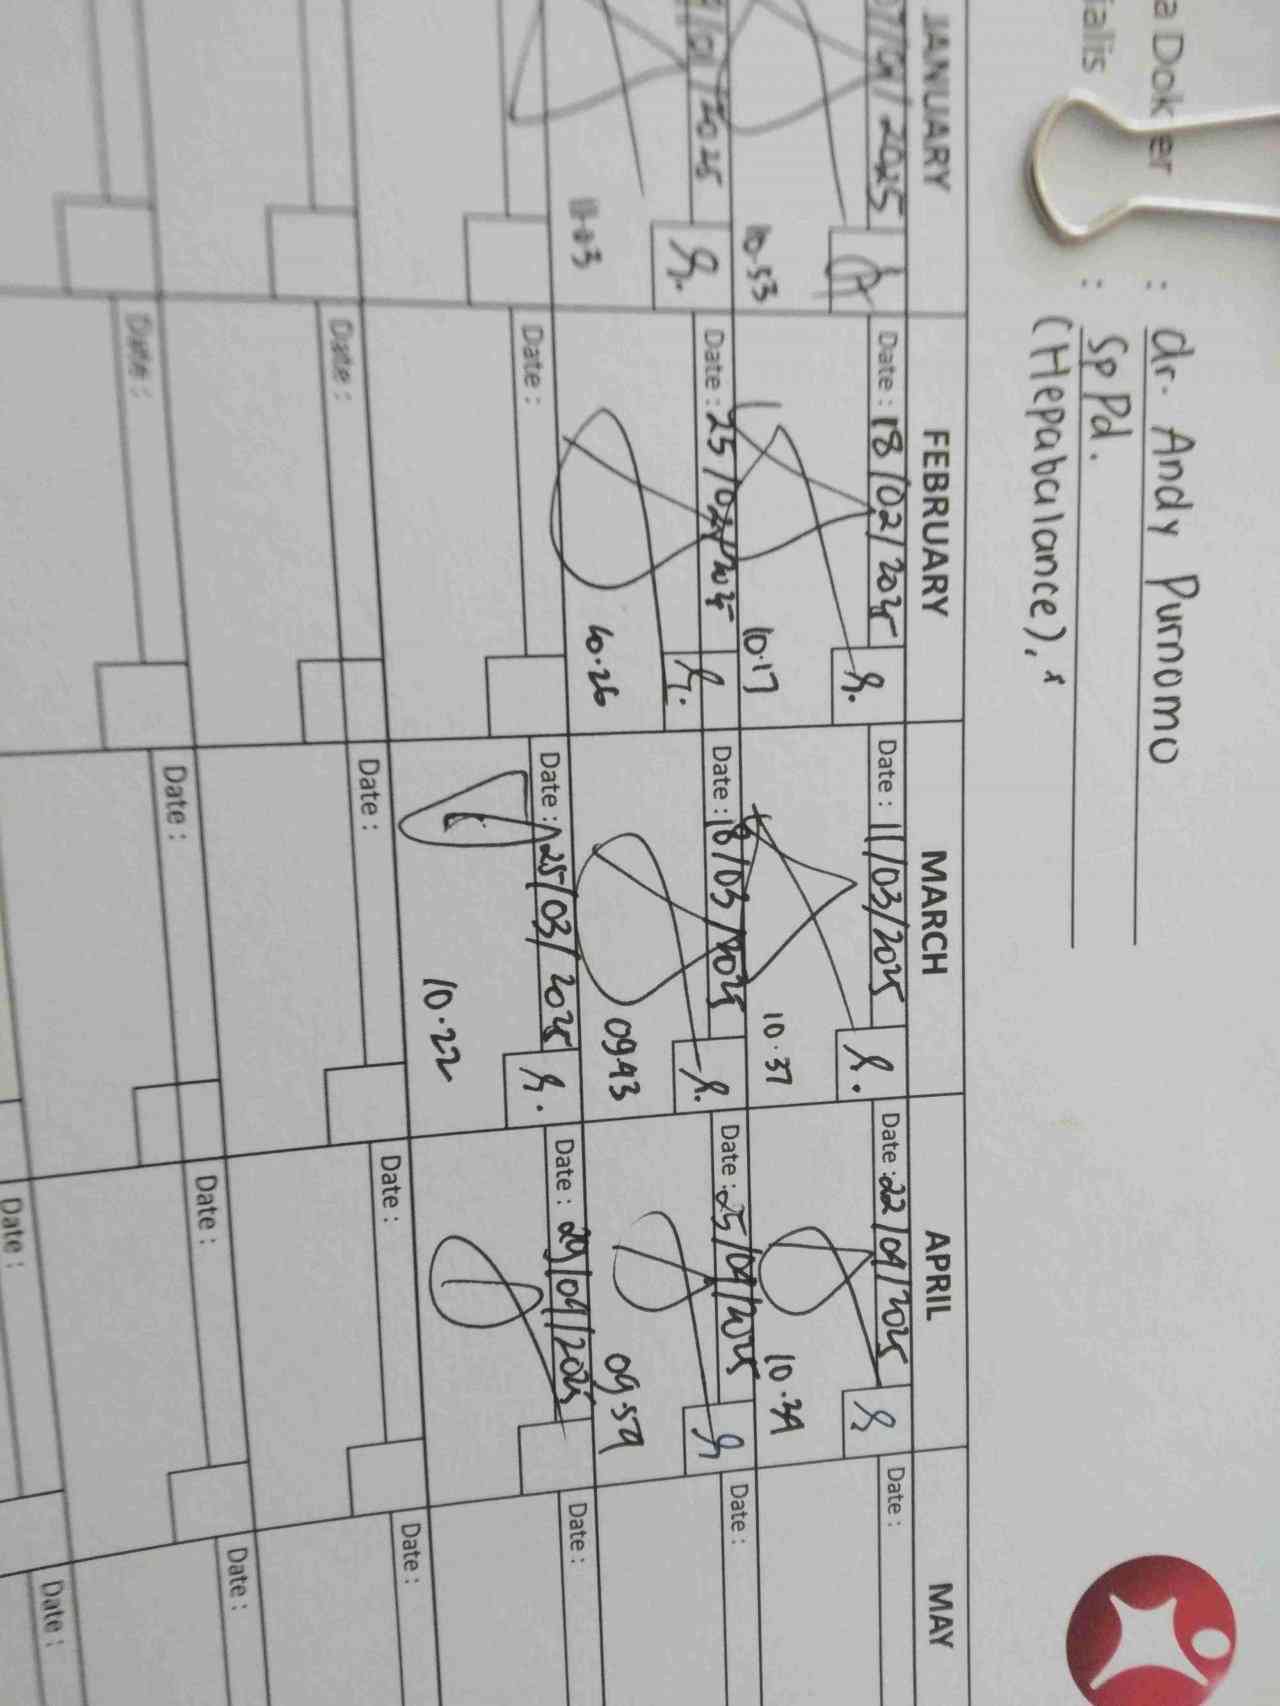 a Dokter : dr. Andy Purnomo
ialis : Sp Pd.
(Hepabalance),*
JANUARY FEBRUARY MARCH APRIL MAY
07/01/2025 Date : 18/02/2025 Date : 11/03/2025 Date : 22/04/2025 Date :
10.53 10.17 10.37 10.34
/01/2025 Date : 25/02/2025 Date : 18/03/2025 Date : 25/04/2025 Date :
10.26 09.43 09.54
Date : Date : 25/03/2025 Date : 29/04/2025 Date :
10.22
Date : Date : Date : Date :
Date : Date : Date : Date :
Date : Date :